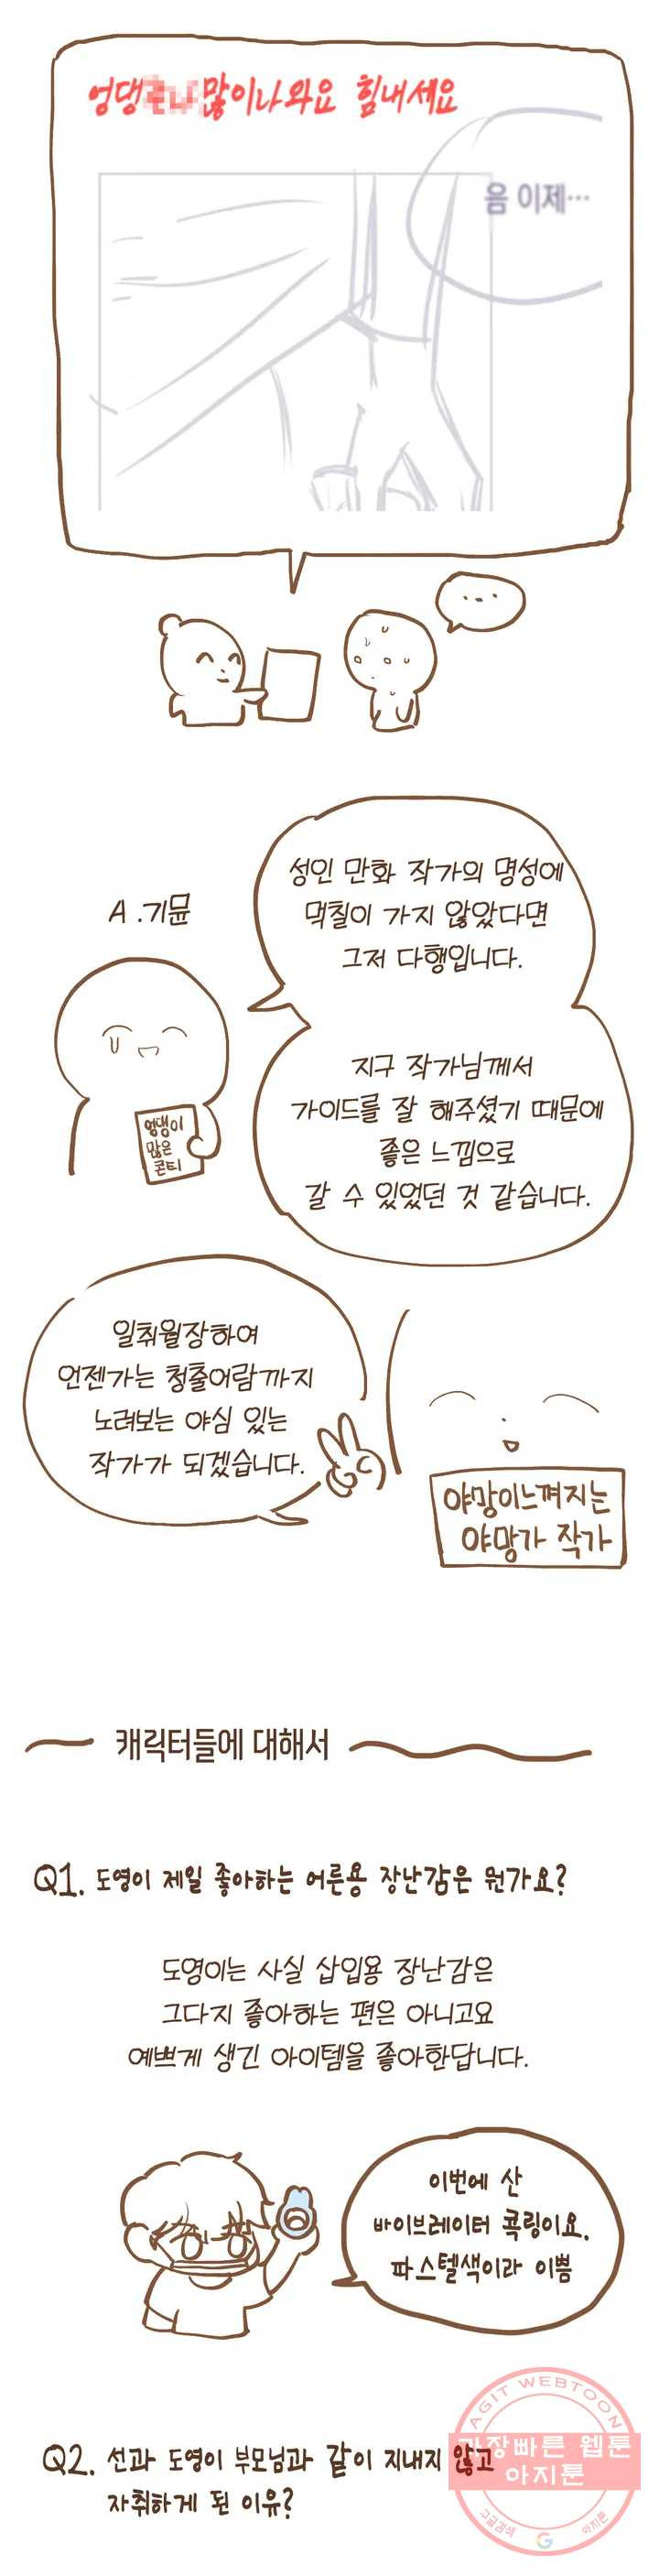 엉댕 많이나와요 힘내세요
음 이제…
...
A .기뮨
성인 만화 작가의 명성에
먹칠이 가지 않았다면
그저 다행입니다.
지구 작가님께서
가이드를 잘 해주셨기 때문에
좋은 느낌으로
갈 수 있었던 것 같습니다.
엉댕이
많은
콘티
일취월장하여
언젠가는 청출어람까지
노려보는 야심 있는
작가가 되겠습니다.
야망이느껴지는
야망가 작가
캐릭터들에 대해서
Q1. 도영이 제일 좋아하는 어른용 장난감은 뭔가요?
도영이는 사실 삽입용 장난감은
그다지 좋아하는 편은 아니고요
예쁘게 생긴 아이템을 좋아한답니다.
이번에 산
바이브레이터 콕링이요.
파스텔색이라 이쁨
Q2. 선과 도영이 부모님과 같이 지내지 않고
자취하게 된 이유?
AGIT WEBTOON
가장빠른 웹툰
아지툰
구글검색
아지툰